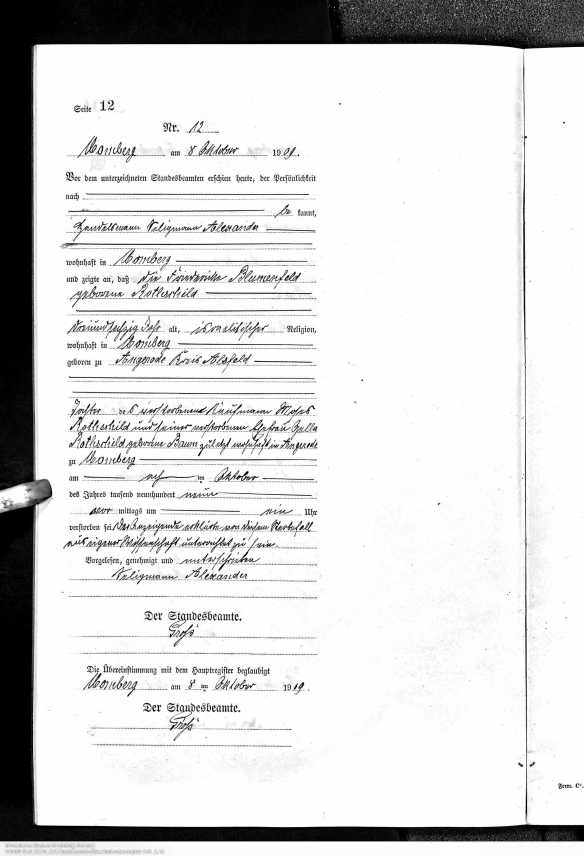 Seite 12
Nr. 12
Momberg am 8 Oktober 1909.
Vor dem unterzeichneten Standesbeamten erschien heute, der Persönlichkeit
nach
be kannt,
Handelsmann Seligmann Alexander
wohnhaft in Momberg
und zeigte an, daß die Friedericke Blumenfeld
geborene Rothschild
dreiundsechzig Jahr alt, israelitischer Religion,
wohnhaft in Momberg
geboren zu Angerode Kreis Alsfeld
Tochter des verstorbenen Kaufmann Moses
Rothschild und seiner verstorbenen Ehefrau
Rothschild geborene Baum zuletzt wohnhaft in Angerode
zu Momberg
am acht en Oktober
des Jahres tausend neunhundert neun
vor mittags um ein Uhr
verstorben sei. Der Anzeigende erklärte von diesem Sterbefall
aus eigener Wissenschaft unterrichtet zu sein.
Vorgelesen, genehmigt und unterschrieben
Seligmann Alexander
Der Standesbeamte.
Groß
Die Übereinstimmung mit dem Hauptregister beglaubigt
Momberg am 8 ten Oktober 1909.
Der Standesbeamte.
Groß
Form. C¹.